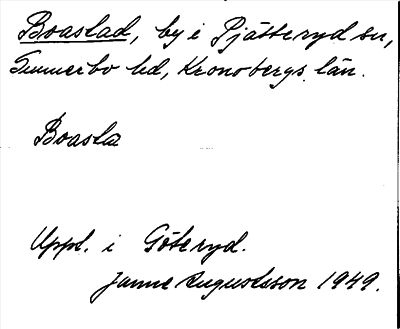 Boastad, by i Pjätteryd sn,
Sunnerbo hd, Kronobergs län.
Boasta
Uppt. i Göteryd.
Janne Augustsson 1949.